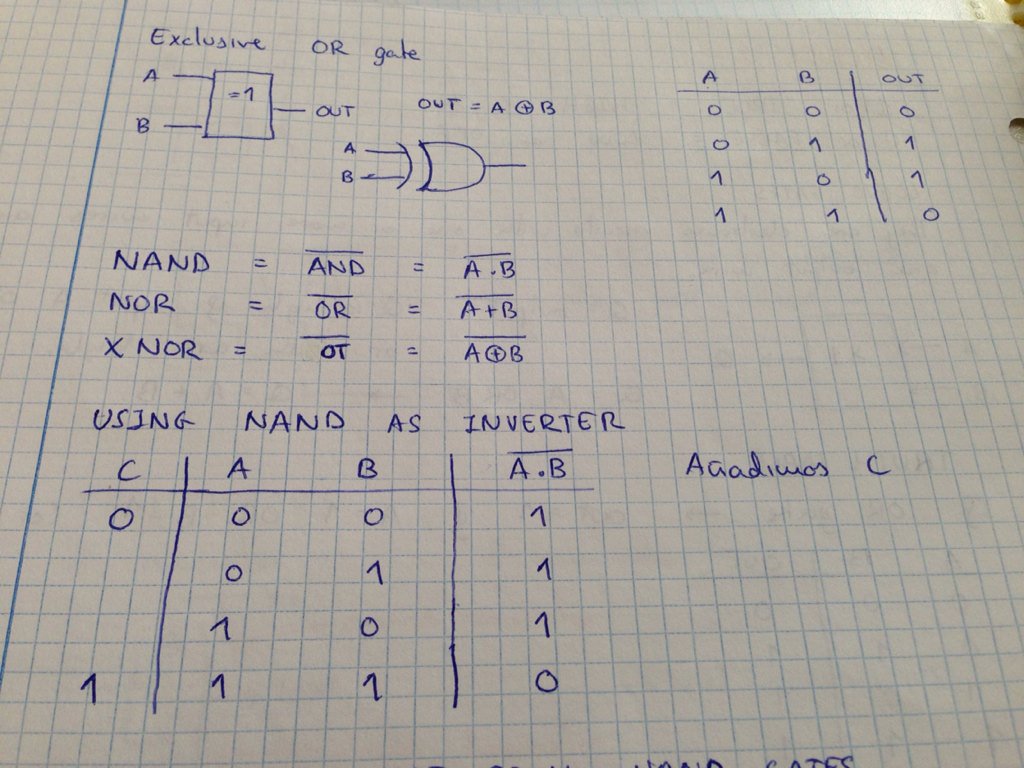 Exclusive OR gate
A
=1
OUT
B
OUT = A ⊕ B
A
B
A B OUT
0 0 0
0 1 1
1 0 1
1 1 0
NAND = A̅N̅D̅ = A̅ ̅.̅ ̅B̅
NOR = O̅R̅ = A̅+̅B̅
X NOR = = A̅⊕̅B̅
USING NAND AS INVERTER
C A B A̅ ̅.̅ ̅B̅
0 0 0 1
0 1 1
1 0 1
1 1 1 0
Añadimos C
NAND GATES